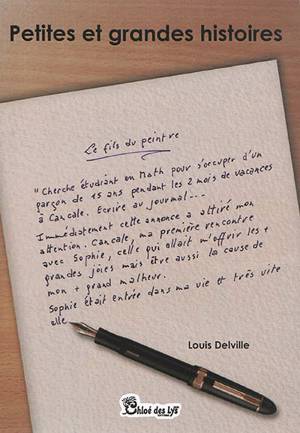 Petites et grandes histoires
Le fils du peintre
"Cherche étudiant en Math pour s'occuper d'un
garçon de 15 ans pendant les 2 mois de vacances
à Cancale. Ecrire au journal...
Immédiatement cette annonce a attiré mon
attention. Cancale, ma première rencontre
avec Sophie, celle qui allait m'offrir les +
grandes joies mais être aussi la cause de
mon + grand malheur.
Sophie était entrée dans ma vie et très vite
elle
Louis Delville
Chloé des Lys